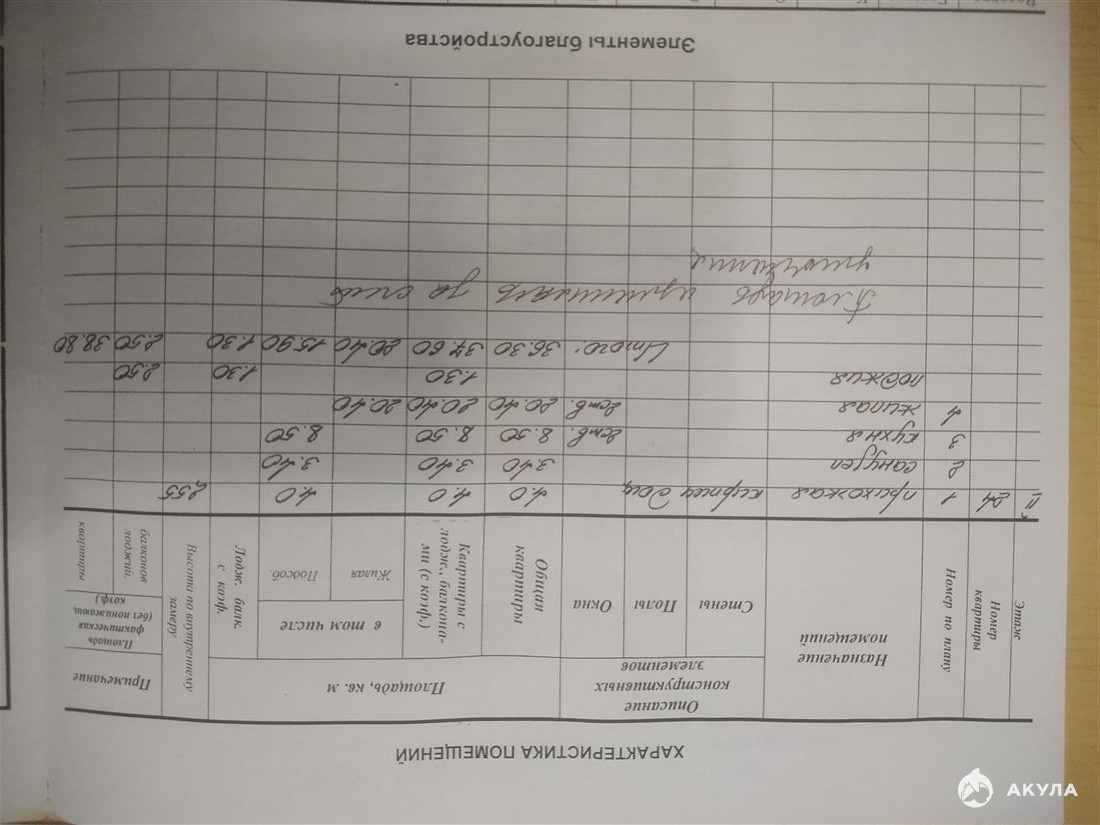 ХАРАКТЕРИСТИКА ПОМЕЩЕНИЙ
Этаж
Номер квартиры
Номер по плану
Назначение помещений
Описание конструктивных элементов
Стены
Полы
Окна
Площадь, кв. м
Общая квартиры
Квартиры с лодж., балкона-ми (с коэф.)
в том числе
Жилая
Подсоб.
Лодж. балк. с коэф.
Высота по внутреннему замеру
Примечание
Площадь фактическая (без понижающ. коэф.)
балконов лоджий.
квартиры
II 24 1 прихожая кирпич дощ. 4.0 4.0 4.0 2,55
2 санузел 3.40 3.40 3.40
3 кухня 2ств. 8.50 8.50 8.50
4 жилая 2ств. 20.40 20.40 20.40
лоджия 1.30 1.30 2.50
Итого: 36.30 37.60 20.40 15.90 1.30 2.50 38.80
Площадь изменилась за счет
уточнения
Элементы благоустройства
АКУЛА